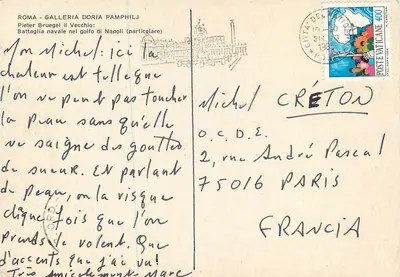 ROMA - GALLERIA DORIA PAMPHILJ
Pieter Bruegel il Vecchio:
Battaglia navale nel golfo di Napoli (particolare)
Mon Michel: Ici la
chaleur est tellegue
l'on ne peut pas toucher
la peau sans qu'elle
ne saigne des gouttes
de sueur. Et parlant
de Peau, on la risque
chaque fois que l'on
prends le volent. Que
d'accents que j'ai vu!
Très amicalement - Marc
POSTE VATICANE 400
Michel CRÉTON
O.C.D.E.
2, rue André Pascal
75016 PARIS
FRANCIA